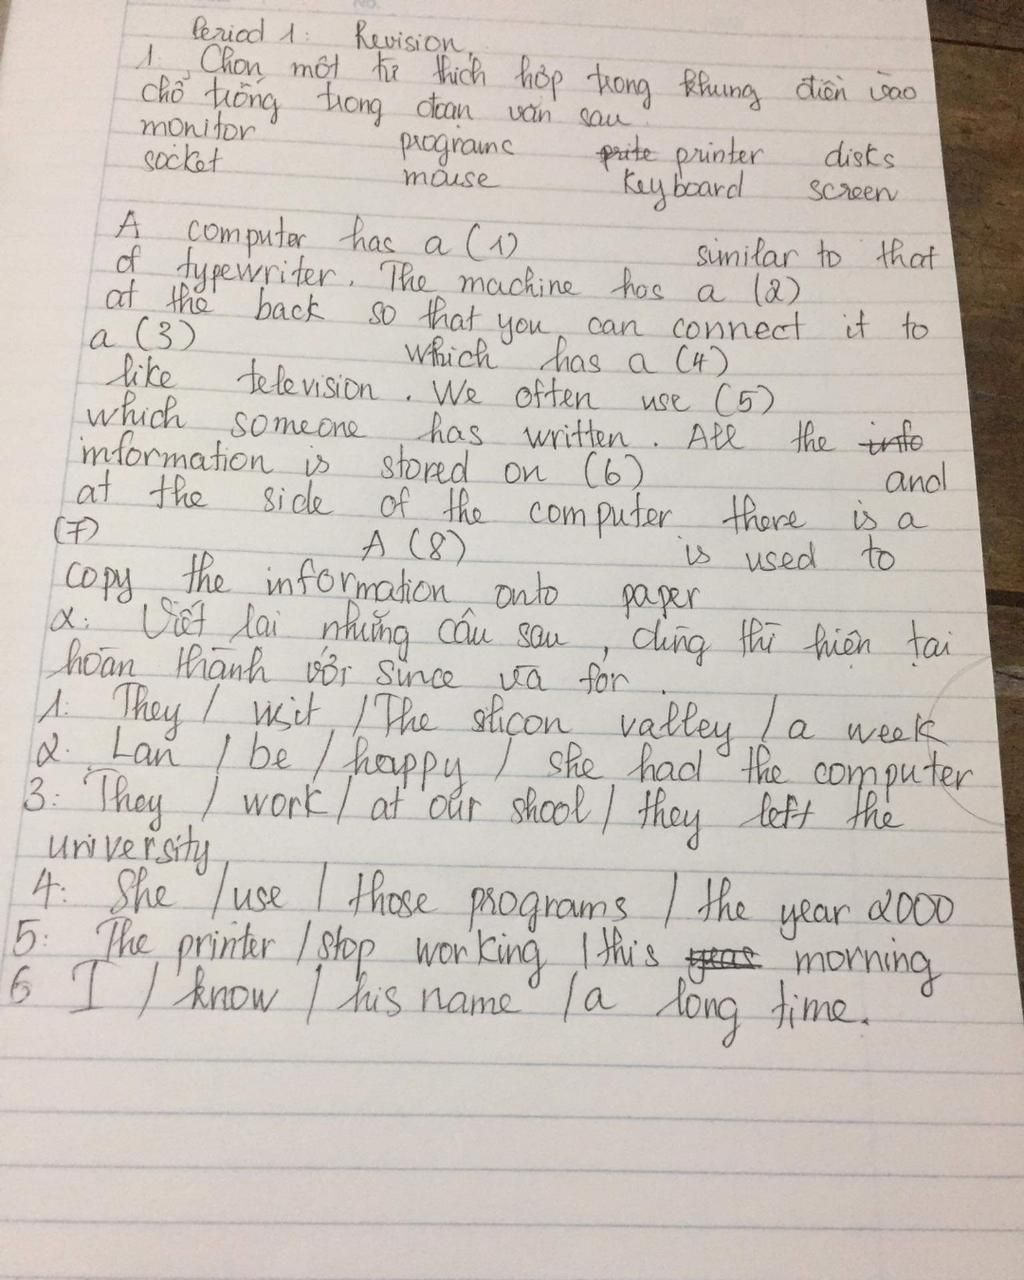 Period 1: Revision.
1. Chọn một từ thích hợp trong khung điền vào
chỗ trống trong đoạn văn sau.
monitor programs printer disks
socket mouse keyboard screen
A computer has a (1) similar to that
of typewriter. The machine has a (2)
at the back so that you can connect it to
a (3) which has a (4)
like television. We often use (5)
which someone has written. All the
information is stored on (6) and
at the side of the computer there is a
(7) A (8) is used to
copy the information onto paper
2: Viết lại những câu sau, dùng thì hiện tại
hoàn thành với since và for.
1: They / visit / The silicon valley / a week
2. Lan / be / happy / she had the computer
3: They / work / at our shool / they left the
university
4: She / use / those programs / the year 2000
5: The printer / stop working / this morning
6 I / know / his name / a long time.